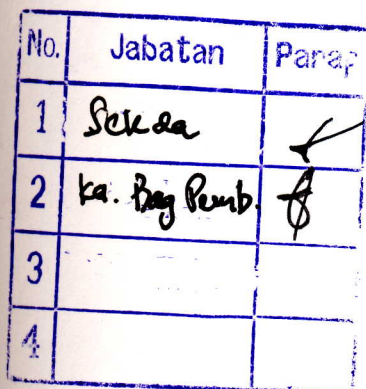 No. Jabatan Paraf
1 Sekda
2 Ka. Bag Pemb.
3
4